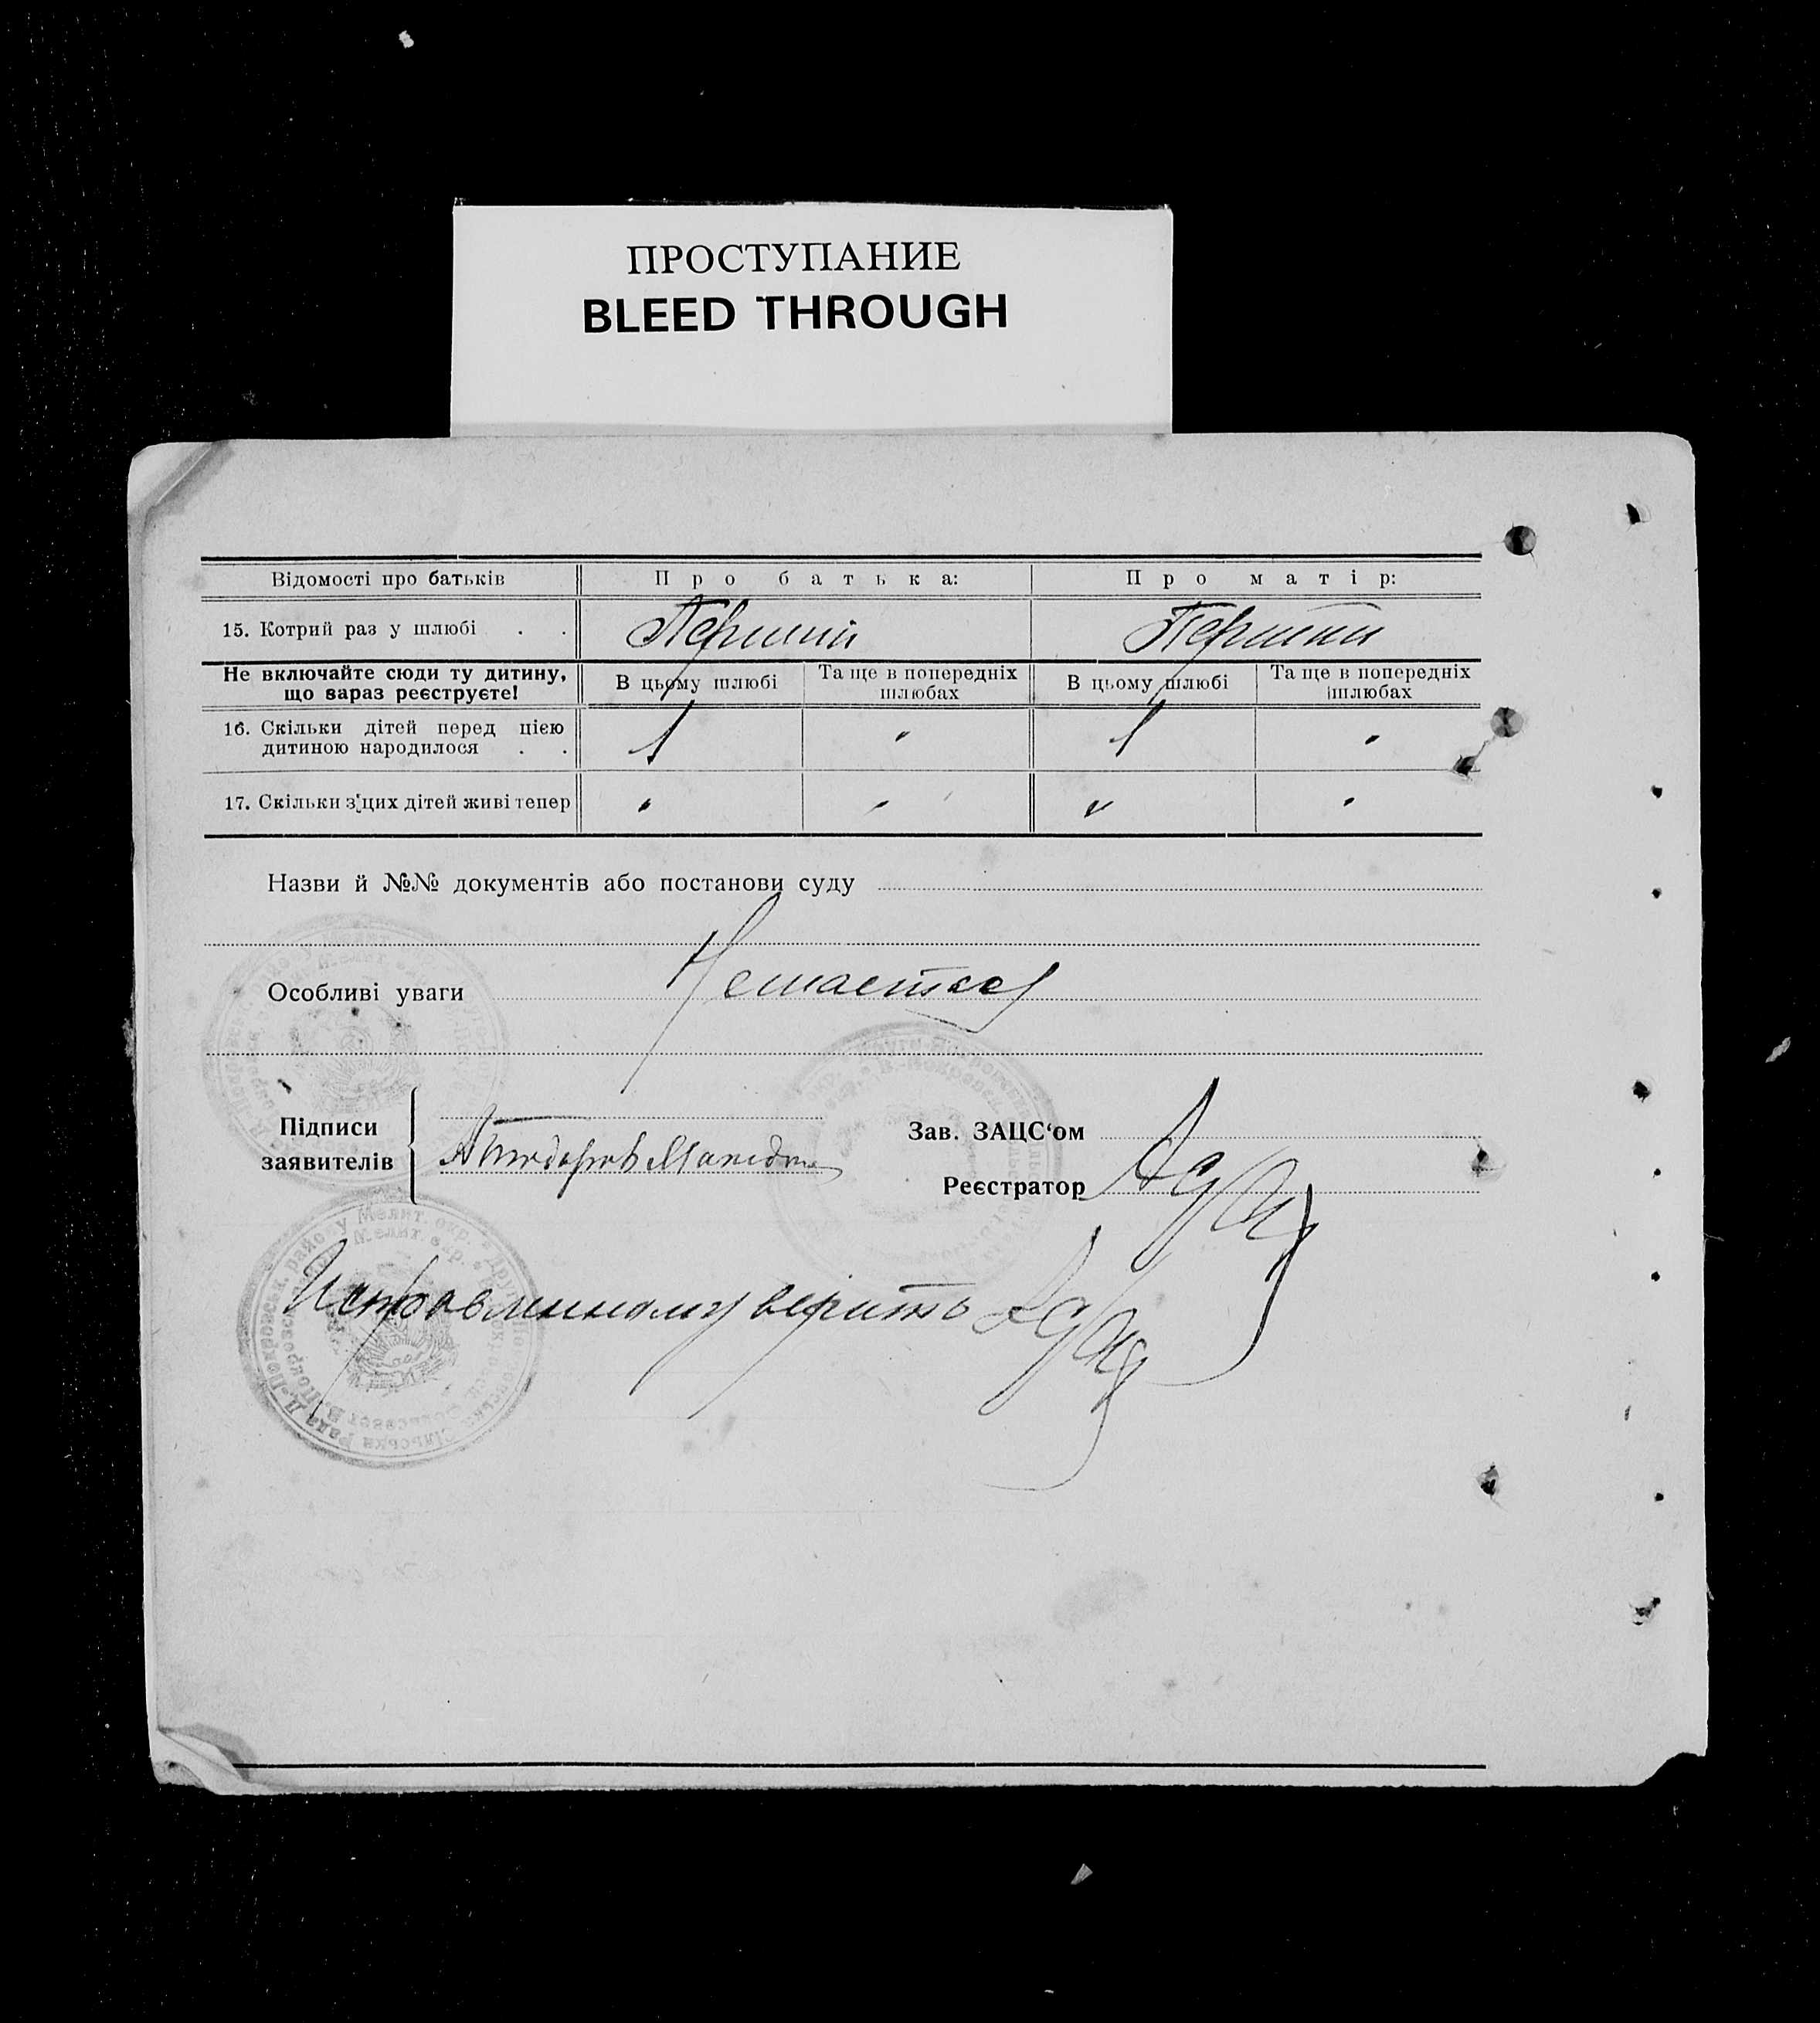 ПРОСТУПАНИЕ
BLEED THROUGH
Відомості про батьків Про батька: Про матір:
15. Котрий раз у шлюбі . . Перший Перший
Не включайте сюди ту дитину, що вараз реєструєте!
В цьому шлюбі Та ще в попередніх шлюбах В цьому шлюбі Та ще в попередніх шлюбах
16. Скільки дітей перед цією
дитиною народилося . . 1 " 1 "
17. Скільки з цих дітей живі тепер " " " "
Назви й №№ документів або постанови суду
Особливі уваги
Підписи
заявителів
Зав. ЗАЦС‘ом
Реєстратор
Исправлиному верить